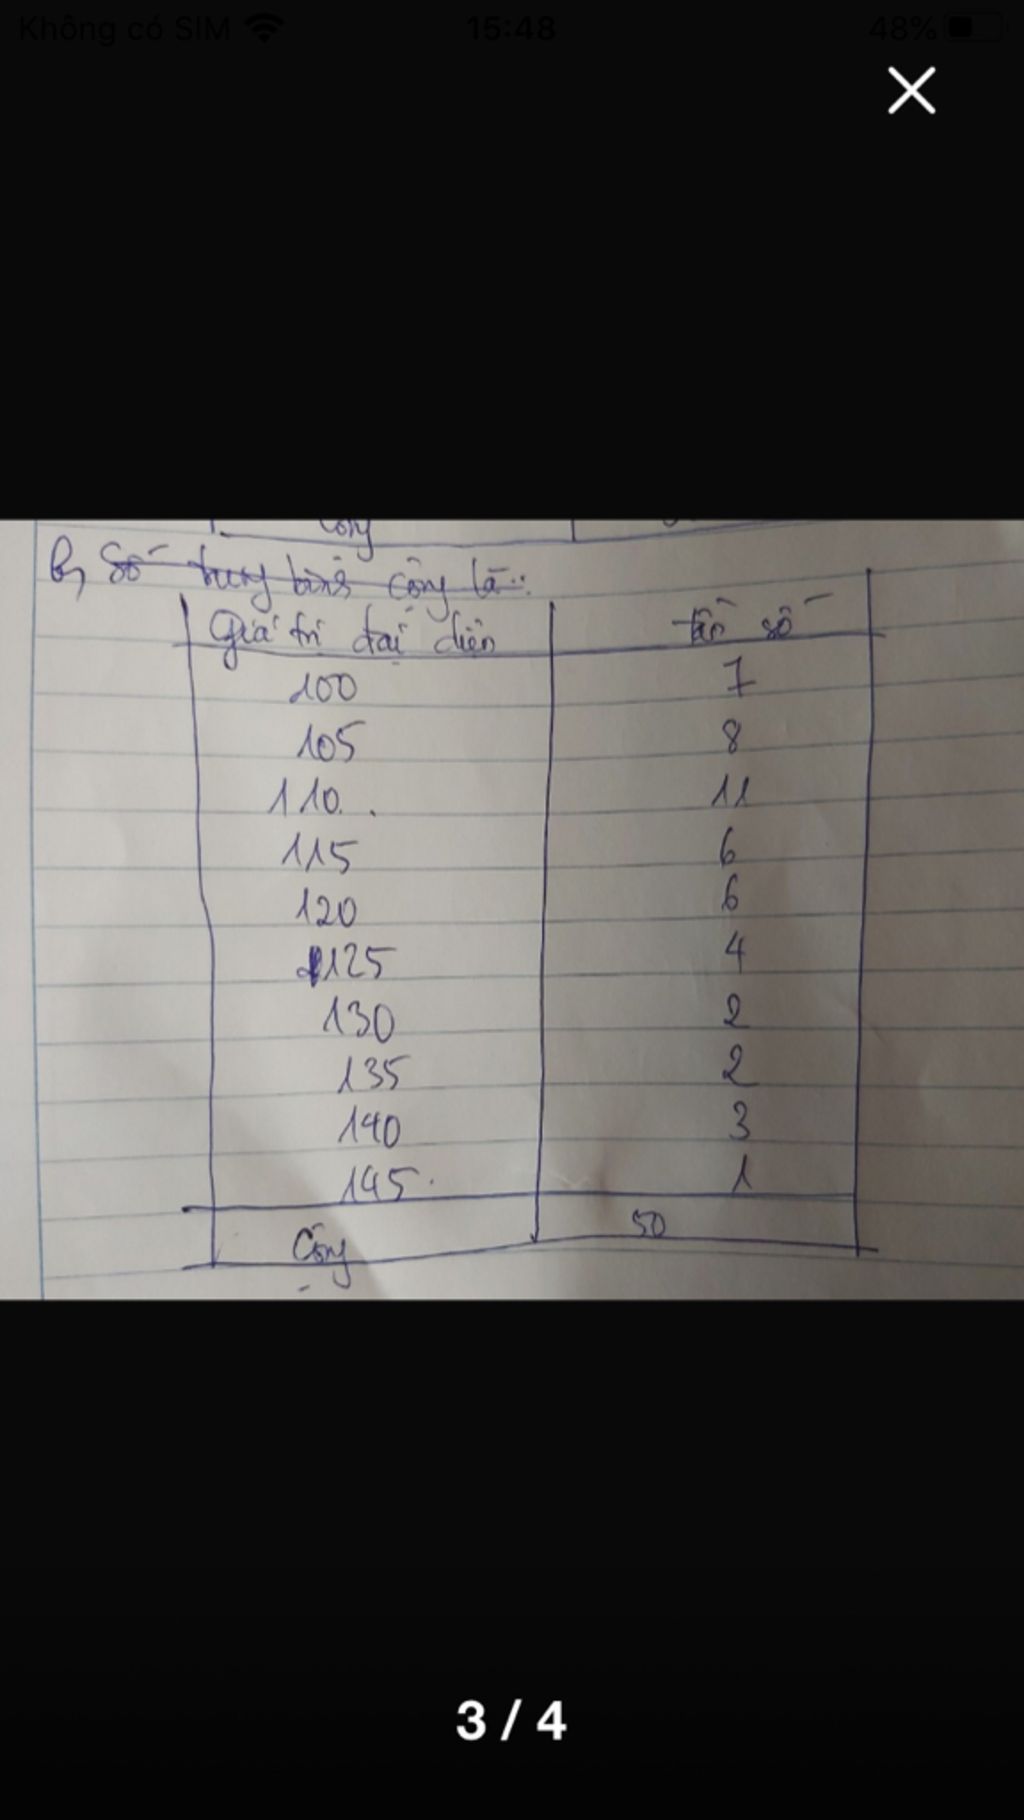 Không có SIM 15:48 48%
Cộng
b, Số trung bình cộng là:
Giá trị đại diện tần số
100 7
105 8
110 11
115 6
120 6
125 4
130 2
135 2
140 3
145 1
Cộng 50
3 / 4